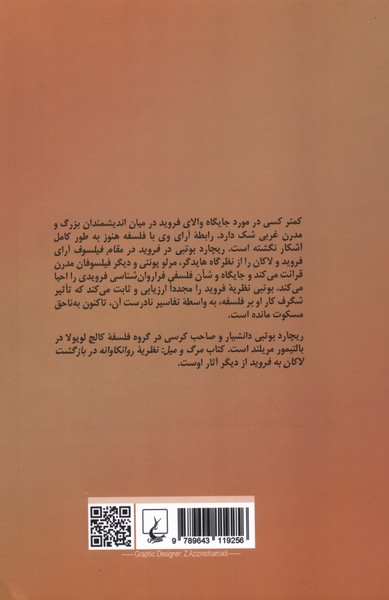 کمتر کسی در مورد جایگاه والای فروید در میان اندیشمندان بزرگ و
مدرن غربی شک دارد. رابطهٔ آرای وی با فلسفه هنوز به طور کامل
آشکار نگشته است. ریچارد بوتبی در فروید در مقام فیلسوف آرای
فروید و لاکان را از نظرگاه هایدگر، مرلو پونتی و دیگر فیلسوفان مدرن
قرائت می‌کند و جایگاه و شأن فلسفی فراروان‌شناسی فرویدی را احیا
می‌کند. بوتبی نظریهٔ فروید را مجدداً ارزیابی و ثابت می‌کند که تأثیر
شگرف کار او بر فلسفه، به واسطهٔ تفاسیر نادرست آن، تاکنون به‌ناحق
مسکوت مانده است.
ریچارد بوتبی دانشیار و صاحب کرسی در گروه فلسفهٔ کالج لویولا در
بالتیمور مریلند است. کتاب مرگ و میل: نظریهٔ روانکاوانه در بازگشت
لاکان به فروید از دیگر آثار اوست.
9 789643 119256
Graphic Designer: Z.Azizmohamadi